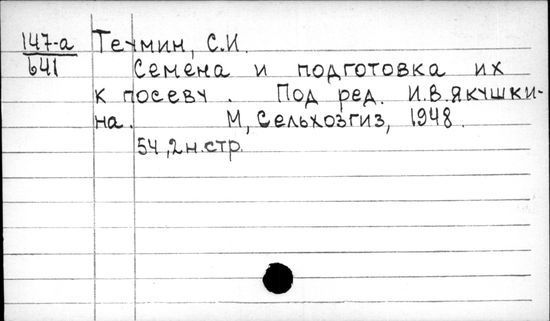 147-а Течмин, С.И.
641
Семена и подготовка их
к посеву. Под ред. И.В.Якушки-
на. М, Сельхозгиз, 1948.
54, 2 н.стр.